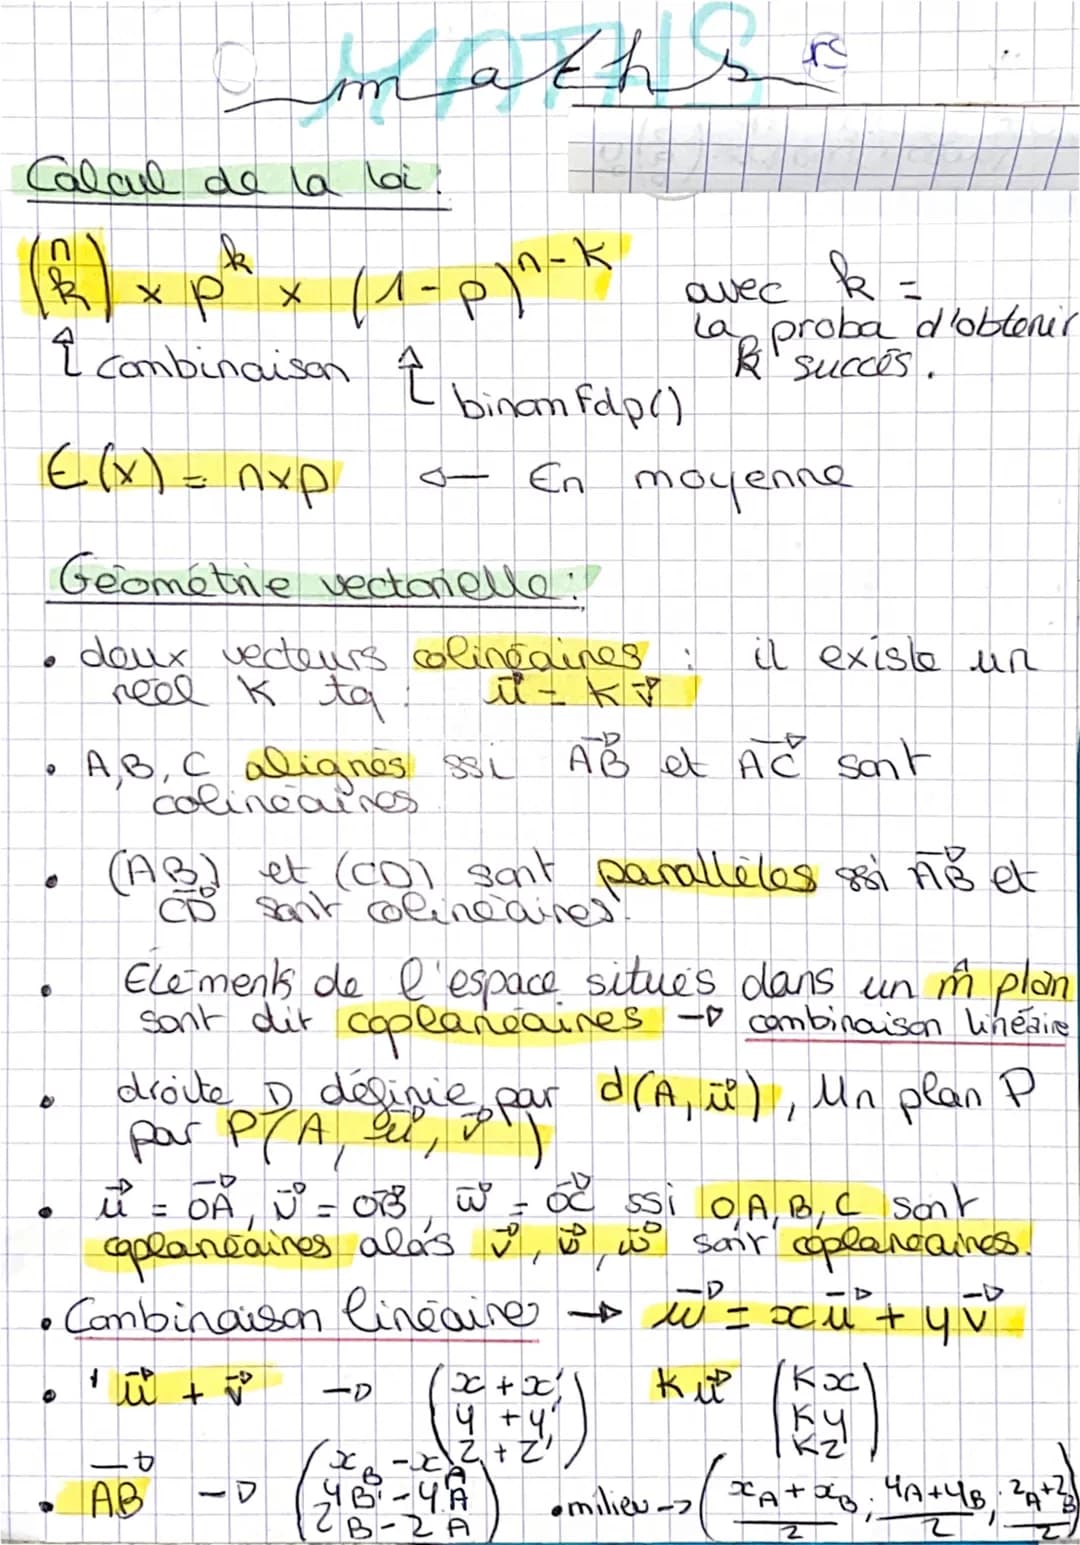 MATHS
maths
Calcul de la loi :
(n k) × p^k × (1-p)^n-k
avec k =
la proba d'obtenir
k succès.
↑ combinaison ↑ binomFdp()
E(x) = n×p ← En moyenne
Géométrie vectorielle :
• deux vecteurs colinéaires : il existe un
réel K tq : u⃗ = K v⃗
• A,B,C alignés ssi AB⃗ et AC⃗ sont
colinéaires
• (AB) et (CD) sont parallèles ssi AB⃗ et
CD⃗ sont colinéaires.
• Eléments de l'espace situés dans un m̂ plan
sont dit coplanéaires → combinaison linéaire
• droite D définie par d(A, u⃗), Un plan P
par P(A, u⃗, v⃗)
• u⃗ = OA⃗, v⃗ = OB⃗, w⃗ = OC⃗ ssi O,A,B,C sont
coplanéaires alors v⃗, v⃗, w⃗ sont coplanéaires.
• Combinaison linéaire → w⃗ = xu⃗ + yv⃗
• u⃗ + v⃗ → (x + x' y + y' z + z') K u⃗ (Kx Ky Kz)
• AB⃗ → (xB - xA yB - yA zB - zA) • milieu → (xA + xB/2 ; yA + yB/2 ; zA + zB/2)